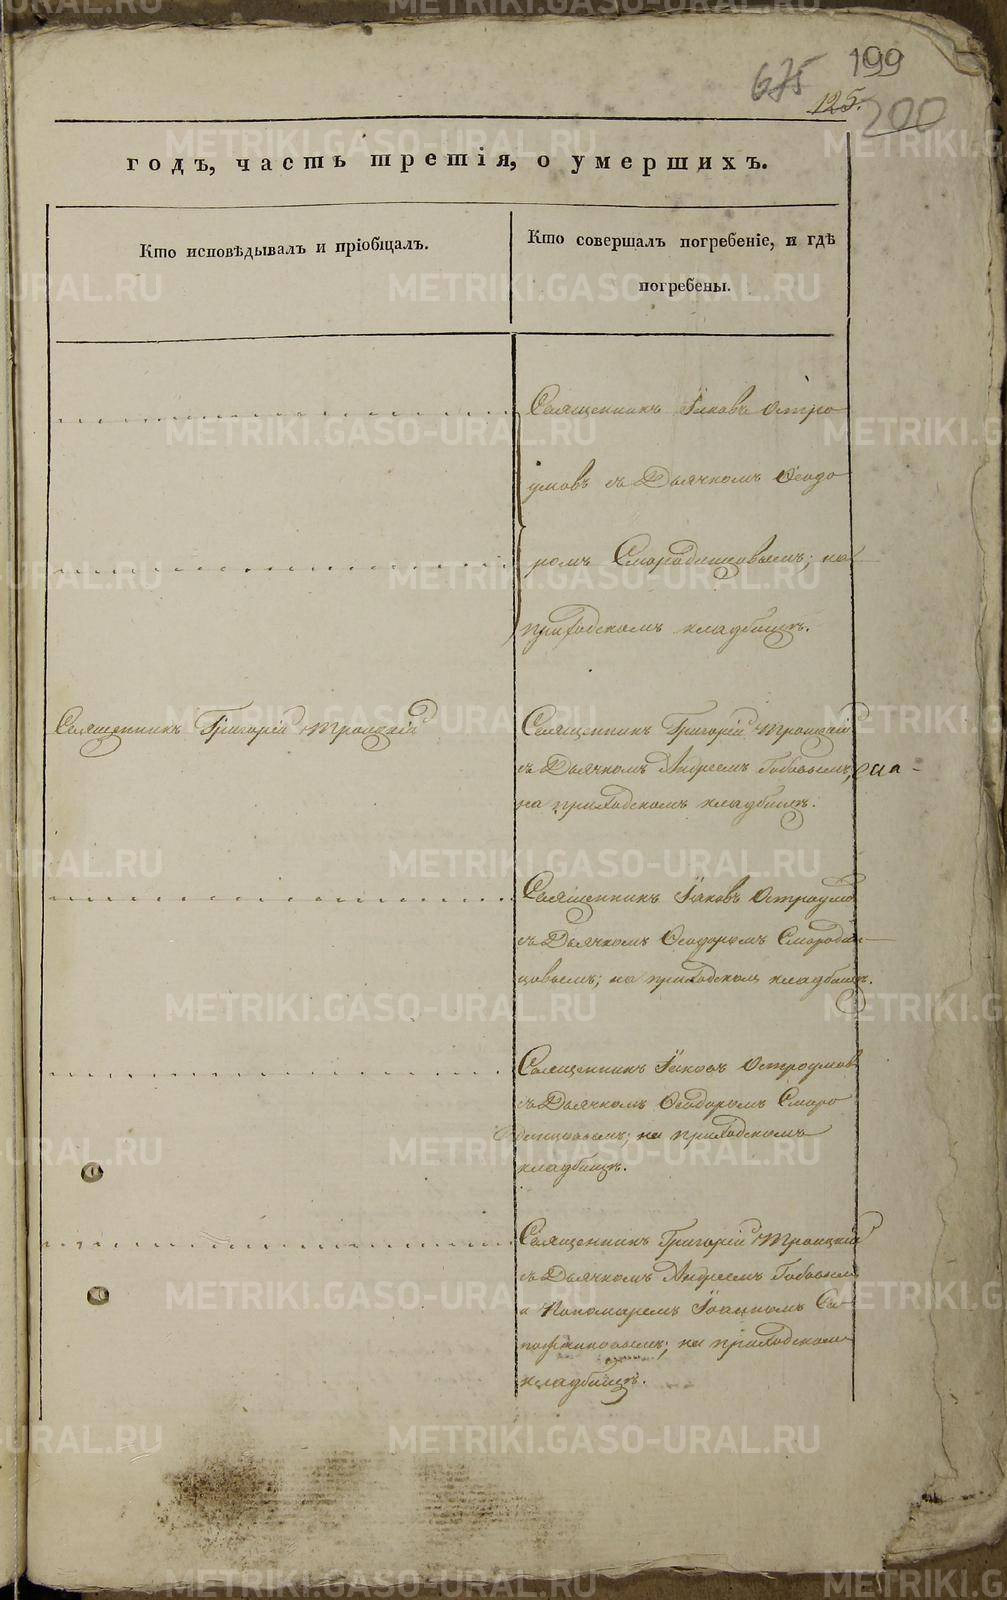 675
199
125.
200
годъ, часть третія, о умершихъ.
Кто исповѣдывалъ и пріобщалъ.
Кто совершалъ погребеніе, и гдѣ
погребены.
Священникъ Іаковъ Остро
умовъ съ Дьячкомъ Ѳеодо
ромъ Смородинцовымъ; на
приходскомъ кладбищѣ.
Священникъ Григорій Троицкій
Священникъ Григорій Троицкій
съ Дьячкомъ Андреемъ
на приходскомъ кладбищѣ.
Священникъ Іаковъ Остроумов
съ Дьячкомъ Ѳеодоромъ Смородин
цовымъ; на приходскомъ кладбищѣ.
Священникъ Іаковъ Остроумов
съ Дьячкомъ Ѳеодоромъ Сморо
динцовымъ; на приходскомъ
кладбищѣ.
Священникъ Григорій Троицкій
съ Дьячкомъ Андреемъ
и Пономаремъ Іоанномъ Са
пожниковымъ; на приходском
кладбищѣ.
METRIKI.GASO-URAL.RU